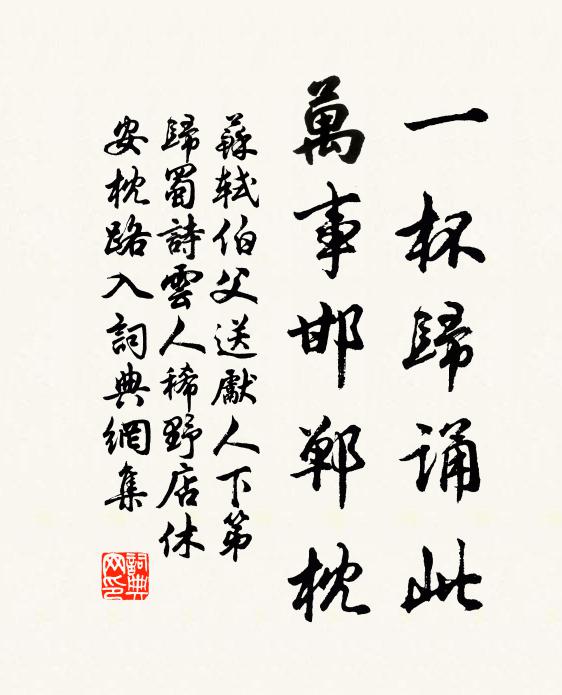 一杯歸誦此
萬事邯鄲枕
蘇軾伯父送獻人下第
歸蜀詩雲人稀野店休
安枕路入詞典網集
詞典網印